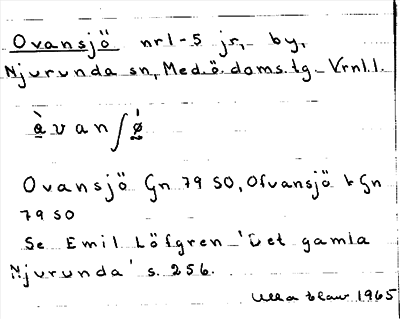 Ovansjö nr 1-5 jr, by,
Njurunda sn, Med.ö.doms.tg. Vrnl.l.
à̱vanʃǿ̱
Ovansjö Gn 79 SO, Ofvansjö t Gn
79 SO
Se Emil Löfgren 'Det gamla
Njurunda' s. 256.
Ulla 1965